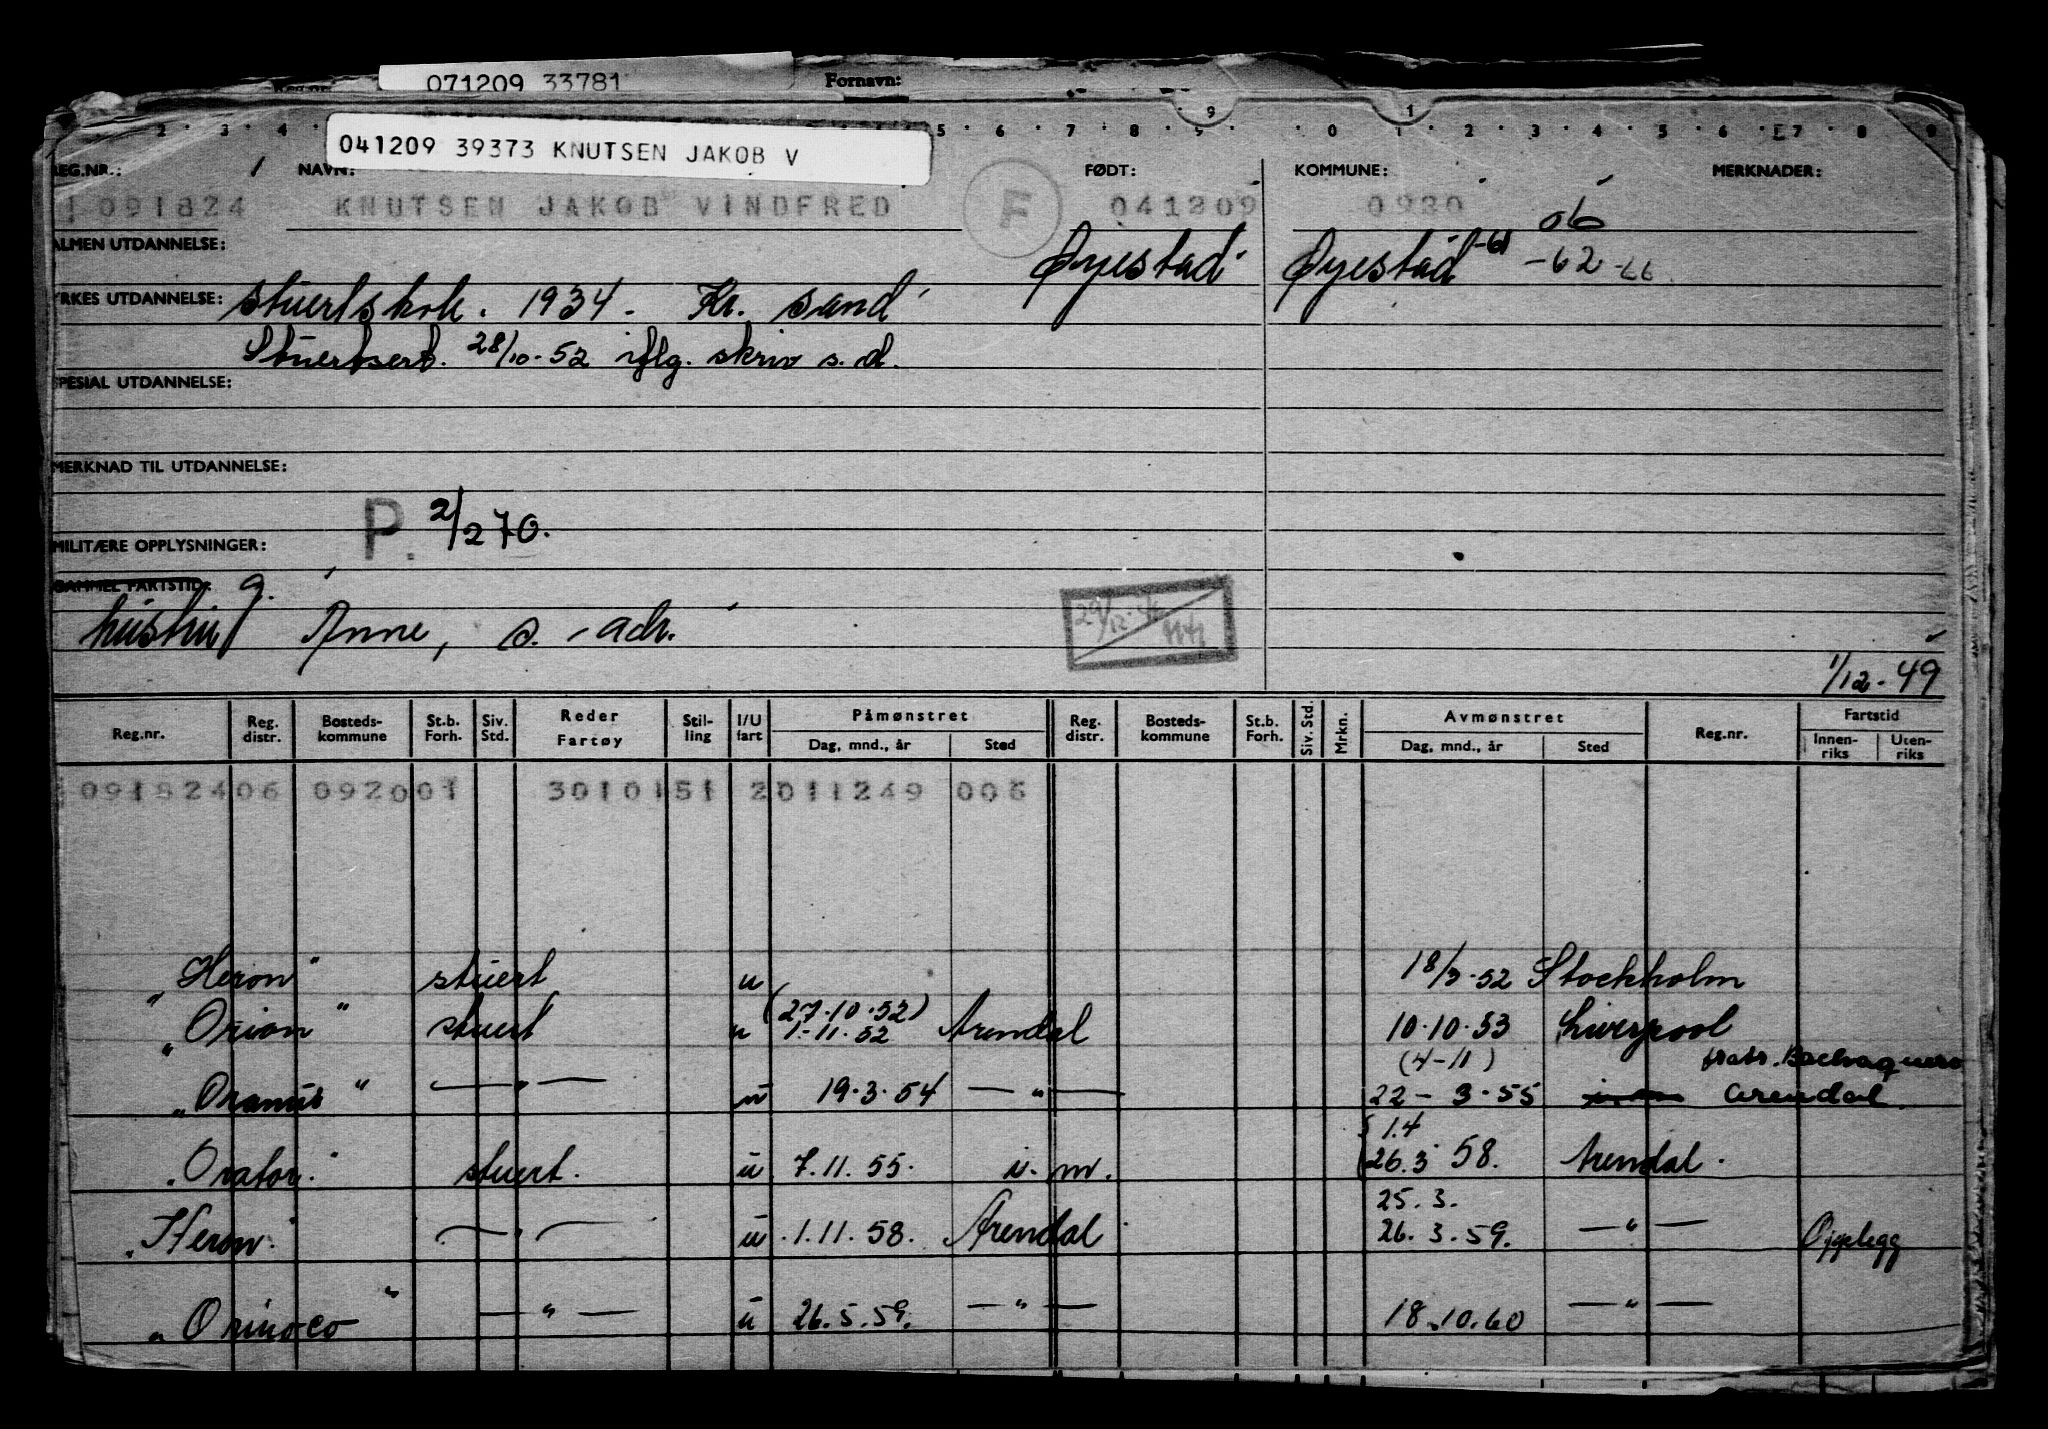 071209 33781 Fornavn:
9 1
2 3 4 5 6 7 8 9 0 1 2 3 4 5 6 7 8 9
041209 39373 KNUTSEN JAKOB V
REG.NR.: NAVN: FØDT: KOMMUNE: MERKNADER:
091824 KNUTSEN JAKOB VINDFRED F 041209 0920
06
ALMEN UTDANNELSE: Øyestad Øyestad -61 -62 -66
YRKES UTDANNELSE: stuertskole. 1934 - Kr. sand
Stuertsert. 28/10-52 iflg. skriv s. d.
SPESIAL UTDANNELSE:
MERKNAD TIL UTDANNELSE:
P. 2/270.
MILITÆRE OPPLYSNINGER:
GAMMEL FARTSTID: g.
hustru Anne, s. - adr.
1/12-49
Reg.nr. Reg. distr. Bosteds-kommune St.b. Forh. Siv. Std. Reder Fartøy Stil-ling I/U fart Påmønstret Dag, mnd., år Sted Reg. distr. Bosteds-kommune St.b. Forh. Siv. Std. Mrkn. Avmønstret Dag, mnd., år Sted Reg.nr. Fartstid Innen-riks Uten-riks
09182406 092001 3010151 2011249 006
"Heron" stuert u 18/3-52 Stockholm
(27.10.52)
"Orion" stuert u 1.-11.52 Arendal 10.10.53 Liverpool
(4-11)
"Oranus" — " — u 19.3.54 — " — 22-3.55 Arendal.
1.4
"Orator." stuert. u 7.11.55. i. m. 26.3 58. Arendal.
25.3.
"Heron." — " — u 1.11.58. Arendal 26.3.59. — " — Opplegg
"Orinoco" — " — u 26.5.59. — " — 18.10.60 — " —